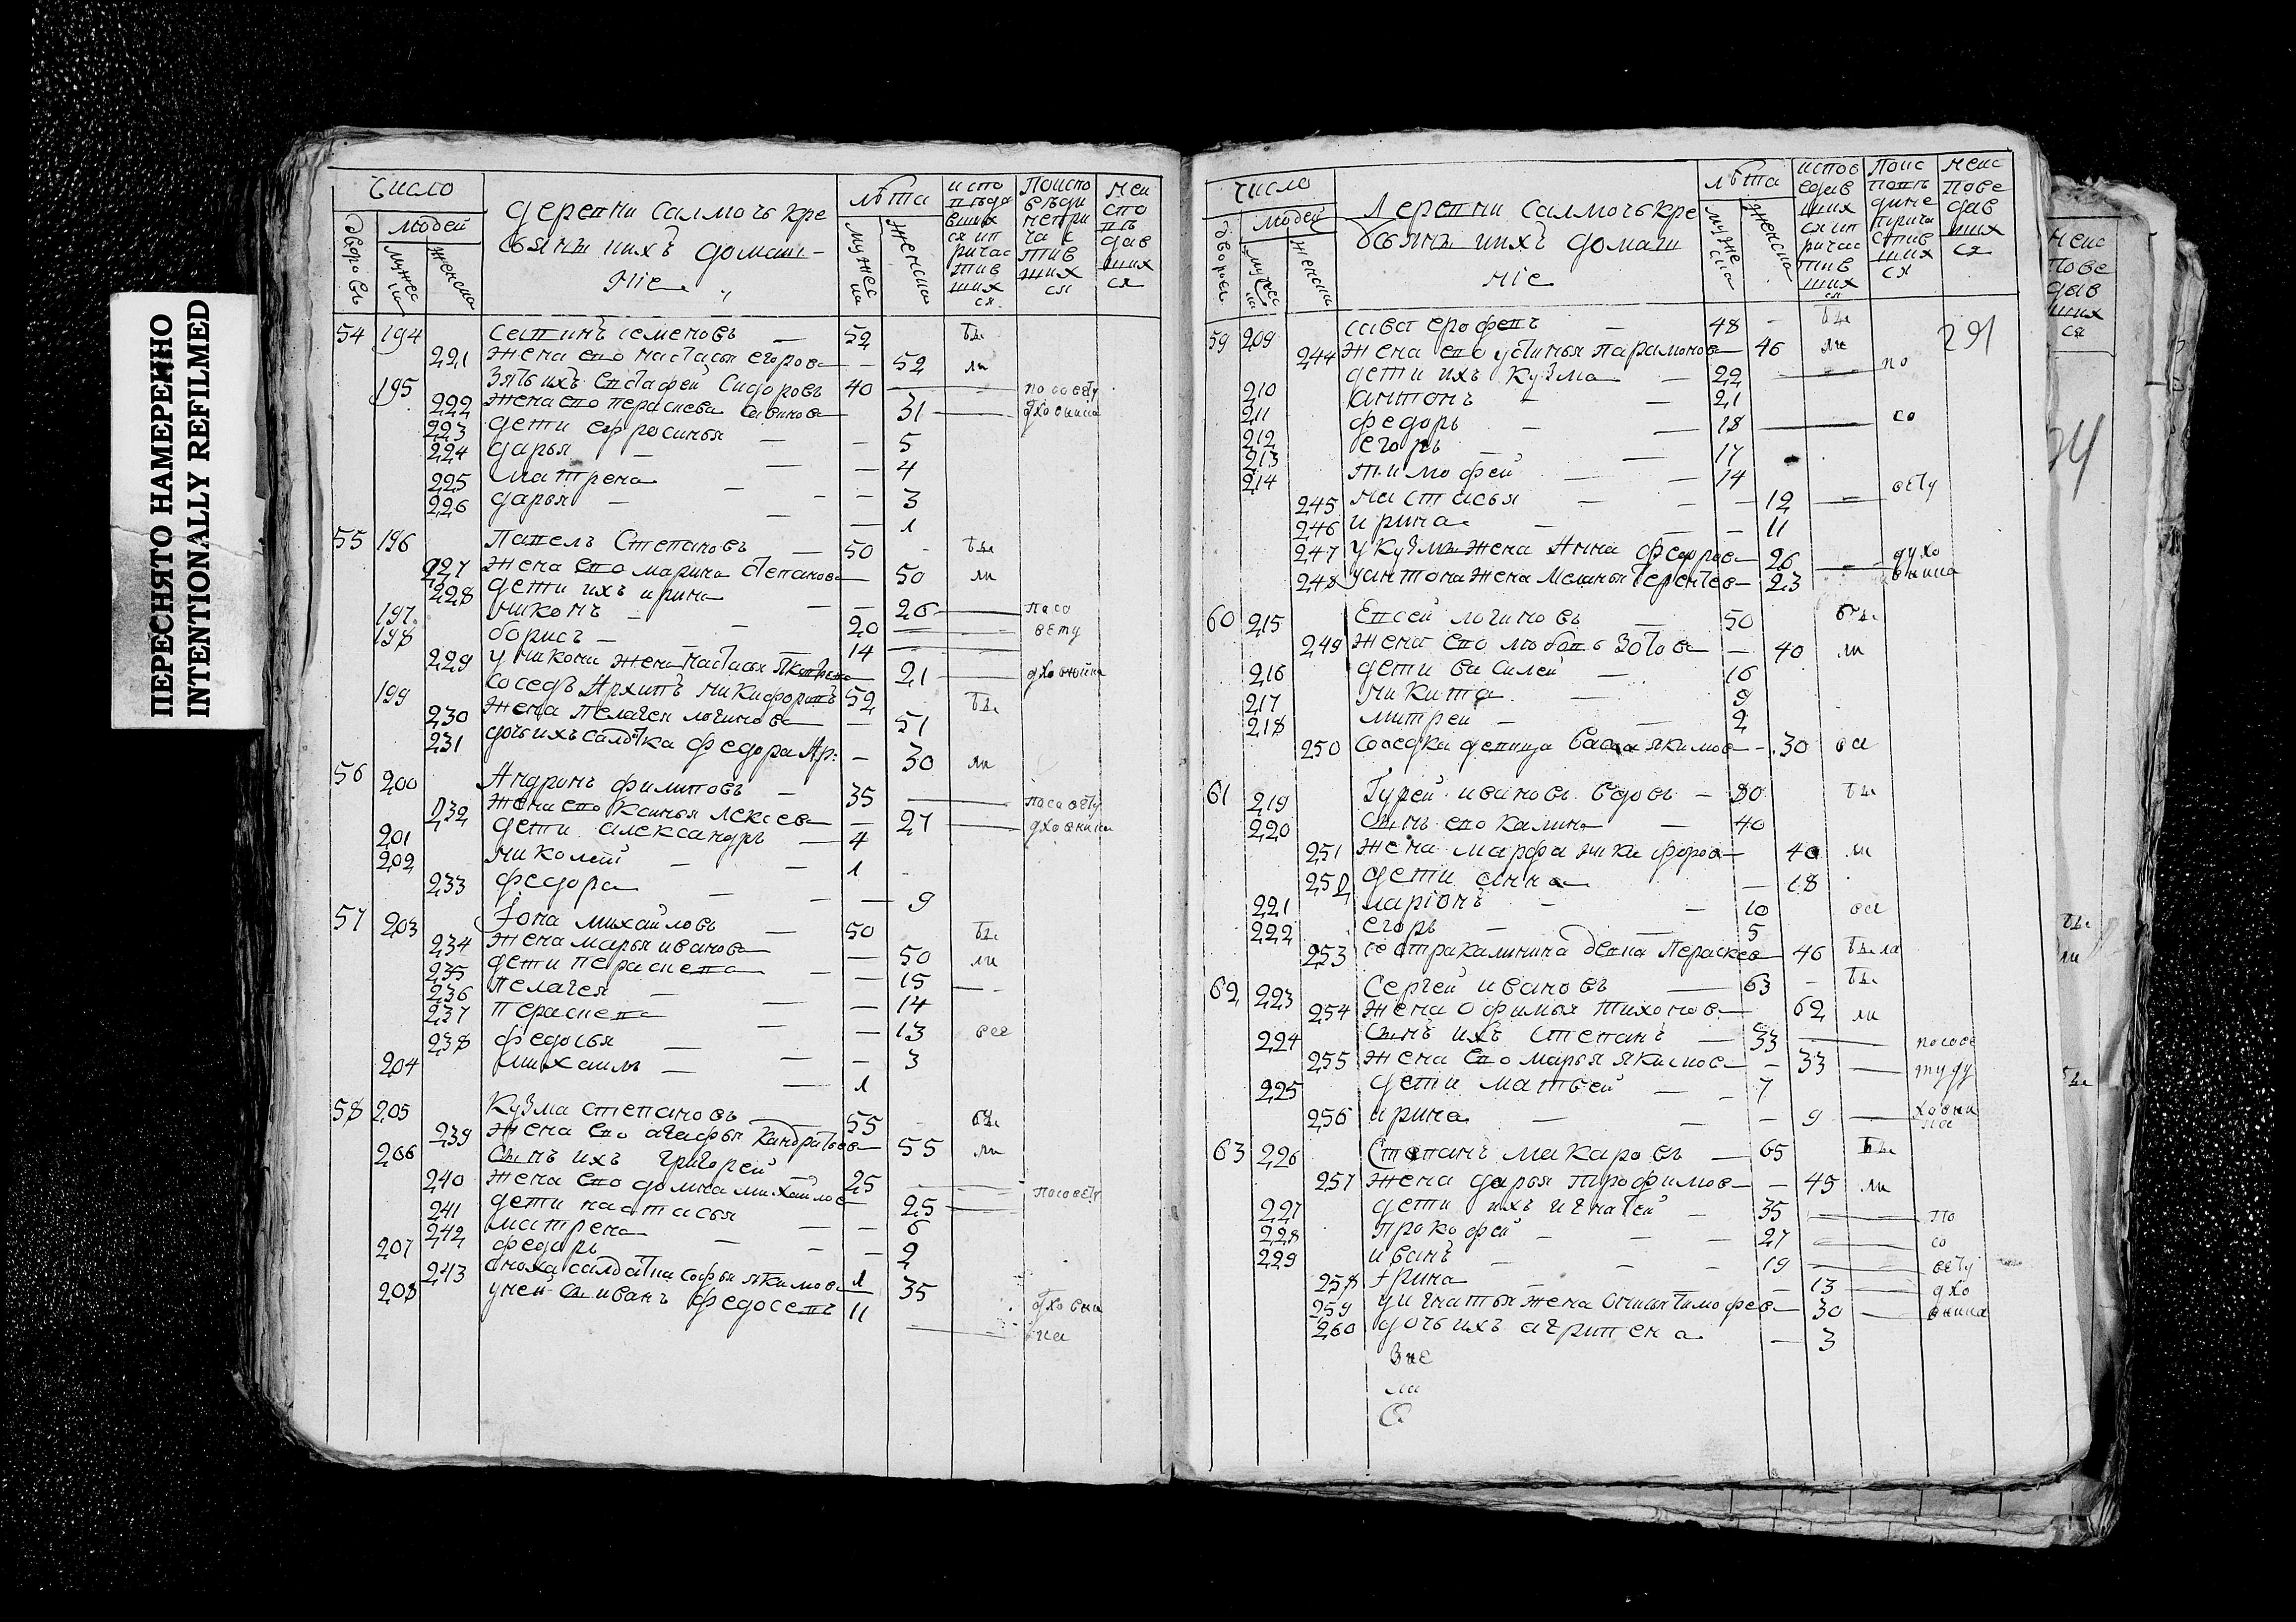 ПЕРЕСНЯТО НАМЕРЕННО
INTENTIONALLY REFILMED
число
дворовъ
людей
мужеска
женска
деревни салмочь кре
стьянъ и ихъ домаш-
ніе
лѣта
мужеска
женска
испо
вѣда
вших
ся и п
ричас
тив
ших
ся
поиспо
вѣди
непри
ча с
тив
ших
ся
неи
спо
вѣ
дав
ших
ся
54 194 савинъ семеновъ — 52 бы
221 жена ево настасья егорова — 52 ли
195 зять ихъ евстафей сидоровъ 40 — по совѣту
222 жена ево парасковья савинова — 31 — дховника
223 дети ефросинья — 5
224 дарья — 4
225 матрена — 3
226 дарья — 1
55 196 Павелъ Степановъ — 50 бы
227 жена ево марина степанова — 50 ли
228 дети ихъ ирина — 26 — по со
197 никонъ — 20 — вету
198 борисъ — 14 —
229 у никона жена настасья — 21 — дховника
199 соседъ Архипъ никифоровъ 52 бы
230 жена пелагея логинова — 51
231 дочь ихъ салдатка федора Ар: — 30 ли
56 200 Андронъ филиповъ — 35 — по совѣту
232 жена ево ксинья лексеева — 27 — дховника
201 дети александръ — 4
202 николай — 1
233 федора — 9
57 203 Iона михаиловъ — 50 бы
234 жена марья иванова — 50 ли
235 дети парасковья — 15 —
236 пелагея — 14
237 парасковья — 13 все
238 федосья — 3
204 михаилъ — 1
58 205 Кузма степановъ — 55 бы
239 жена ево агафья Кандратьева — 55 ли
206 сынъ ихъ григорей — 25 —
240 жена ево домна михайлова — 25 — по совѣту
241 дети настасья — 6
242 матрена — 2
207 федоръ — 1
243 сноха салдатка софья якимова — 35
208 у ней сынъ иванъ федосеевъ 11 — дховни
ка
число
дворовъ
людей
мужеска
женска
Деревни салмочь кре
стьянъ и ихъ домаш
ніе
лѣта
мужеска
женска
испов
едав
ших
ся и п
ричас
тив
ших
ся
поис
поведи не
прича
стив
ших
ся
неис
пове
дав
ших
ся
291
59 209 савва ерофеевъ — 48 — бы
244 жена ево устинья парамонова — 46 ли
210 дети их Кузма — 22 — по
211 антонъ — 21
212 федоръ — 18 — со
213 егоръ — 17
214 тимофей — 14 вѣту
245 настасья — 12 —
246 ирина — 11
247 у Кузмы жена Анна федорова — 26 — духо
248 у антона жена Меланья Терентьева — 23 — вника
60 215 Евсей логиновъ — 50 бы
249 жена ево любовь Зотова — 40 ли
216 дети василей — 16
217 никита — 9
218 митрей — 2
250 соседка девица якимова — 30 все
61 219 Гурей ивановъ вдовъ — 80 бы
220 сынъ ево калина — 40
251 жена марфа никифорова — 40 ли
252 дети анна — 18
221 ларіонъ — 10 все
222 егоръ — 5
253 сестра калинина девка Параскева — 46 была
62 223 Сергей ивановъ — 63 — бы
254 жена офимья тихонова — 62 ли
224 сынъ ихъ степанъ — 33 — по сове
255 жена ево марья якимова — 33 — ту ду
225 дети матвей — 7
256 ирина — 9 — ховни
ка
63 226 Степанъ макаровъ — 65 бы
257 жена дарья трофимова — 45 ли
227 дети ихъ игнатей — 35 — по
228 прокофей — 27 — со
229 иванъ — 19 — вѣту
258 ирина — 13 — дхо
259 у игнатья жена тимофеева — 30 — вника
260 дочь ихъ агрипена — 3
неис
пове
дав
ших
ся
бы
ли
бы